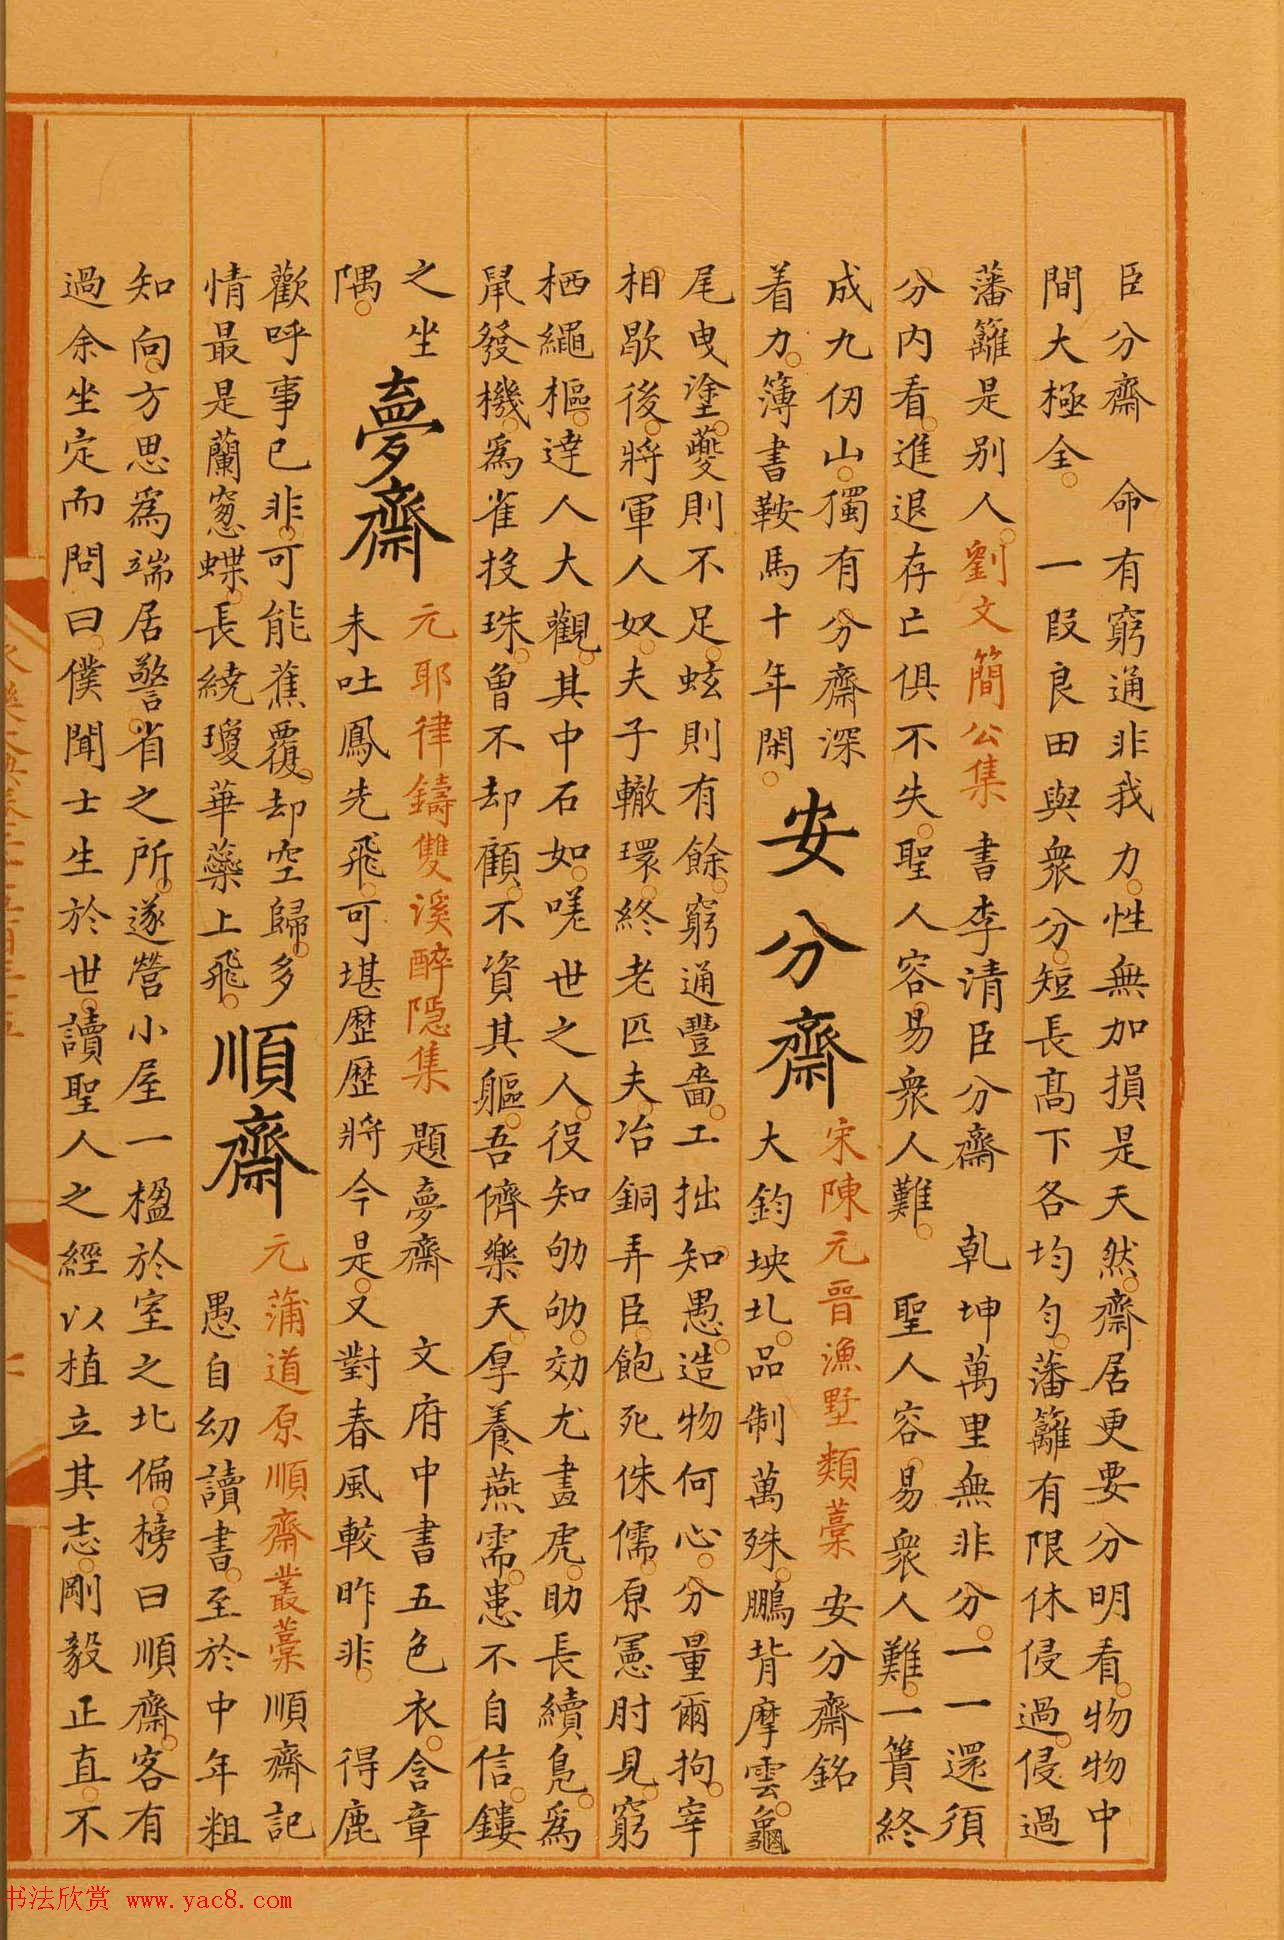 臣分齋　命有窮通非我力性無加損是天然齋居更要分明看物物中
間大極全　一叚良田與衆分短長高下各均勻藩籬有限休侵過侵過
藩籬是别人劉文簡公集書李清臣分齋　乹坤萬里無非分一一還須
分内看進退存亡俱不失聖人容易衆人難　聖人容易衆人難一簣終
成九仞山獨有分齋深
着力簿書鞍馬十年閑
安分齋
宋陳元晉漁墅類藁　安分齋銘
大鈞坱圠品制萬殊鵬背摩雲龜
尾曳塗夔則不足蚿則有餘窮通豐嗇工拙知愚造物何心分量爾拘宰
相歇後將軍人奴夫子轍環終老匹夫冶銅弄臣飽死侏儒原憲肘見窮
栖繩樞達人大觀其中石如嗟世之人役知劬劬効尤畫虎助長續鳧爲
鼠發機爲雀投珠曾不却顧不資其軀吾儕樂天厚養燕需患不自信鏤
之坐
隅
夢齋
元耶律鑄雙溪醉隱集　題夢齋　文府中書五色衣含章
未吐鳳先飛可堪歷歷將今是又對春風較昨非　得鹿
歡呼事已非可能蕉覆却空歸多
情最是蘭窓蝶長繞瓊華藥上飛
順齋
元蒲道原順齋叢藁順齋記
愚自幼讀書至於中年粗
知向方思爲端居警省之所遂營小屋一楹於室之北偏榜曰順齋客有
過余坐定而問曰僕聞士生於世讀聖人之經以植立其志剛毅正直不
书法欣赏 www.yac8.com